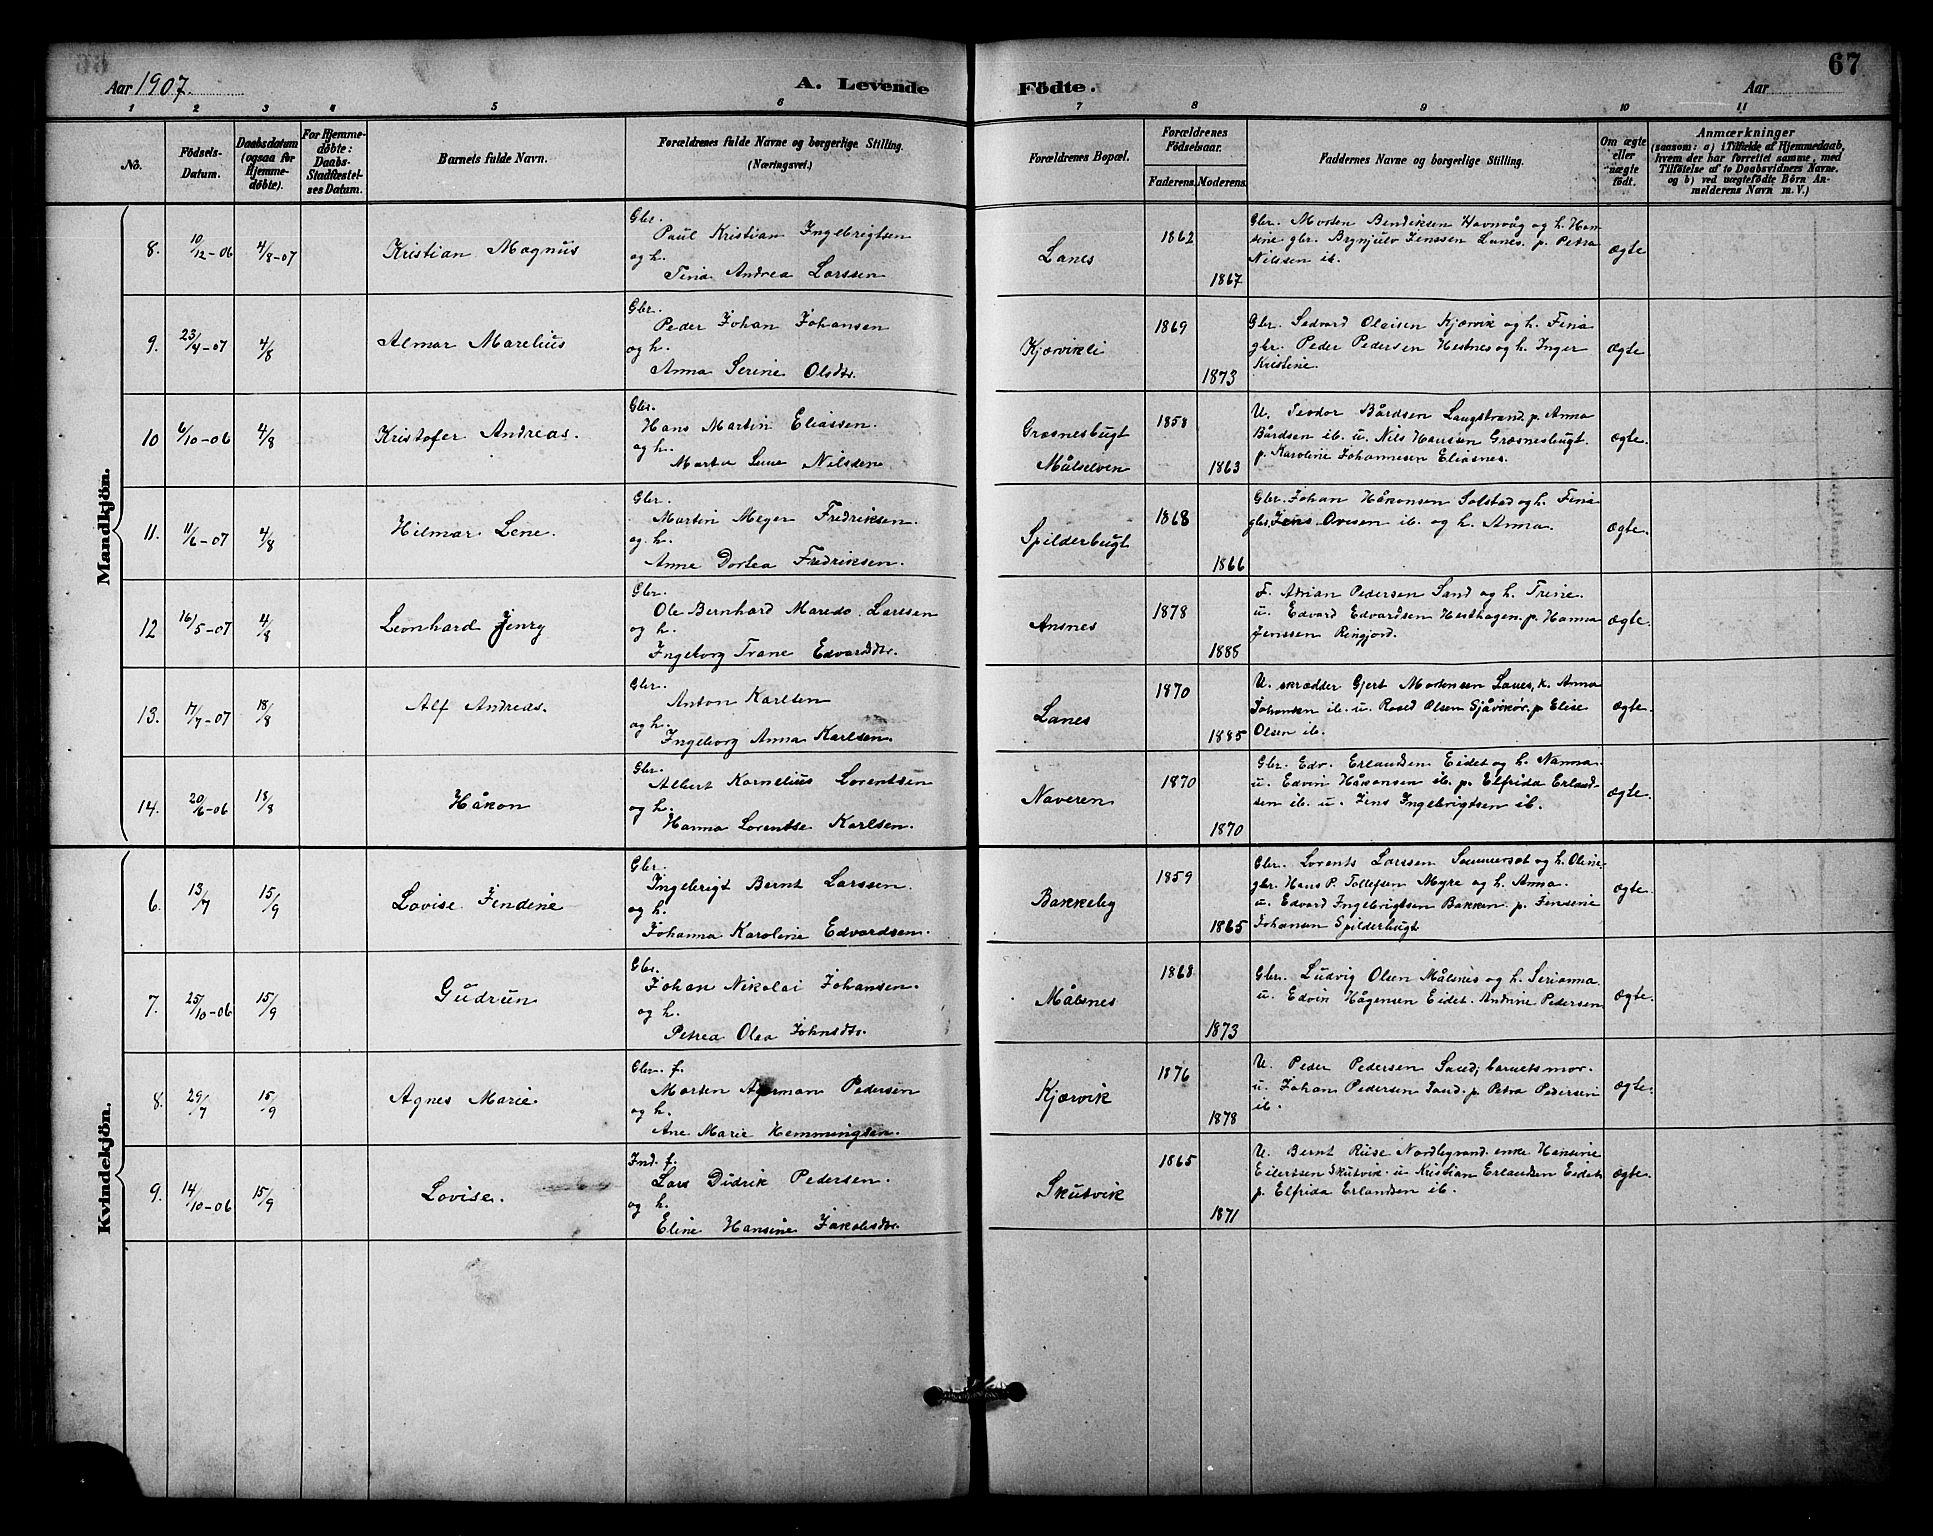 67
Aar 1907. A. Levende Födte. Aar
1 2 3 4 5 6 7 8 9 10 11
No.
Födsels-
Datum.
Daabsdatum
(ogsaa for
Hjemme-
döbte).
For Hjemme-
döbte:
Daabs-
Stadfæstel-
ses Datum.
Barnets fulde Navn.
Forældrenes fulde Navne og borgerlige Stilling.
(Næringsvei.)
Forældrenes Bopæl.
Forældrenes
Födselsaar.
Faderens. Moderens.
Faddernes Navne og borgerlige Stilling.
Om ægte
eller
uægte
födt.
Anmærkninger
(saasom: a) i Tilfælde af Hjemmedaab,
hvem der har forrettet samme, med
Tilföielse af to Daabsvidners Navne,
og b) ved uægtefödte Börn An-
melderens Navn m. V.)
Mandkjön.
8. 10/12-06 4/8-07 Kristian Magnus
Gbr.
Paul Kristian Ingebrigtsen
og h.
Tina Andrea Larssen
Lanes
1862
1867
Gbr. Morten Bendiksen Havnvåg og h. Han-
sine gbr. Brynjulv Jenssen Lanes. p. Petra
Nilssen ib.
ægte
9. 23/4-07 4/8 Almar Marelius
Gbr.
Peder Johan Johansen
og h.
Anna Serine Olsdtr.
Kjærvikli
1869
1873
Gbr. Sedvard Olaisen Kjærvik og h. Fina
gbr. Peder Pedersen Hestnes og h. Inger
Kristine.
ægte
10 6/10-06 4/8 Kristofer Andreas.
Gbr.
Hans Martin Eliassen.
og h.
Marta Nilsdtr.
Græsnesbugt
Målselven
1858
1863
U. Teodor Bårdsen Langstrand. p. Anna
Bårdsen ib. u. Nils Hansen Græsnesbugt.
p. Karoline Johannesen Eliasnes.
ægte.
11. 11/6-07 4/8 Hilmar Lene.
Gbr.
Martin Meyer Fredriksen.
og h.
Anne Dortea Fredriksen.
Spilderbugt
1868
1866
Gbr. Johan Håkonsen Solstad og h. Fina
gbr. Jens Ovesen ib. og h. Anna.
ægte.
12 16/5-07 4/8 Leonhard Jenry
Gbr.
Ole Bernhard Maredo. Larssen
og h.
Ingeborg Trane Edvardsdtr.
Ansnes
1878
1885
F. Adrian Pedersen Sand og h. Trine.
u. Edvard Edvardsen Hesthagen. p. Hanna
Jenssen Ringjord.
ægte.
13. 17/7-07 18/8 Alf Andreas.
Gbr.
Anton Karlsen
og h.
Ingeborg Anna Karlsen.
Lanes
1870
1885
U. skrædder Gjert Mortensen Lanes, k. Anna
Johansen ib. u. Olsen Sjåvikør. p. Elise
Olsen ib.
ægte.
14. 20/6-06 18/8 Håkon
Gbr.
Albert Kornelius Lorentsen
og h.
Hanna Lorentse Karlsen.
Naveren
1870
1870
Gbr. Edv. Erlandsen Eidet og h. Nanna.
u. Edvin Håkonsen ib. p. Elfrida Erland-
sen ib. u. Jens Ingebrigtsen ib.
ægte.
Kvindekjön.
6. 13/7 15/9 Lovise Jendine
Gbr.
Ingebrigt Bernt Larssen.
og h.
Johanna Karoline Edvardsen.
Bakkeby
1859
1865
Gbr. Lorents Larssen Sommerset og h. Oline.
gbr. Hans P. Tollefsen Myre og h. Anna.
u. Edvard Ingebrigtsen Bakken. p. Jensine
Johansen Spilderbugt
ægte.
7. 25/10-06 15/9 Gudrun
Gbr.
Johan Nikolai Johansen.
og h.
Petrea Olea Johnsdtr.
Målsnes
1868
1873
Gbr. Ludvig Olsen Målsnes og h. Serianna.
u. Edvin Hågensen Eidet. Andrine Pedersen
ægte.
8. 29/7 15/9 Agnes Marie
Gbr. f.
Morten Pedersen
og h.
Ane Marie Hemmingsen.
Kjærvik
1876
1878
U. Peder Pedersen Sand, barnets mor.
u. Johan Pedersen Sand. p. Petra Pedersen
ib.
ægte.
9. 14/10-06 15/9 Lovise.
Ind. f.
Lars Didrik Pedersen.
og h.
Eline Hansine Jakobsdtr.
Skutvik
1865
1871
U. Bernt Ruse Nordbygrand. enke Hansine
Eilertsen Skutvik. u Kristian Erlandsen Eidet
p. Elfrida Erlandsen ib.
ægte.